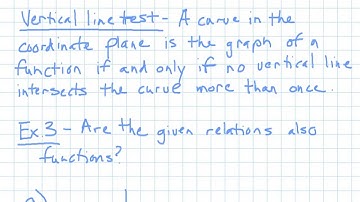 Vertical line test - A curve in the
coordinate plane is the graph of a
function if and only if no vertical line
intersects the curve more than once.
Ex. 3 - Are the given relations also
functions?